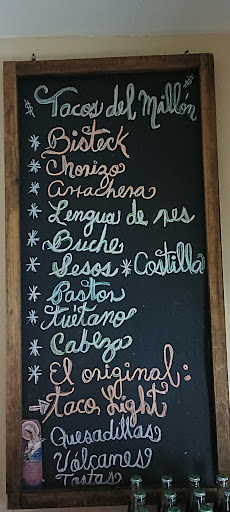 Tacos del Millón
* Bisteck
* Chorizo
* arrachera
* Lengua de res
* Buche
* Sesos * Costilla
* Pastor
* tuétano
* Cabeza
* El original:
taco Light
Quesadillas
Vólcanes
Tostas